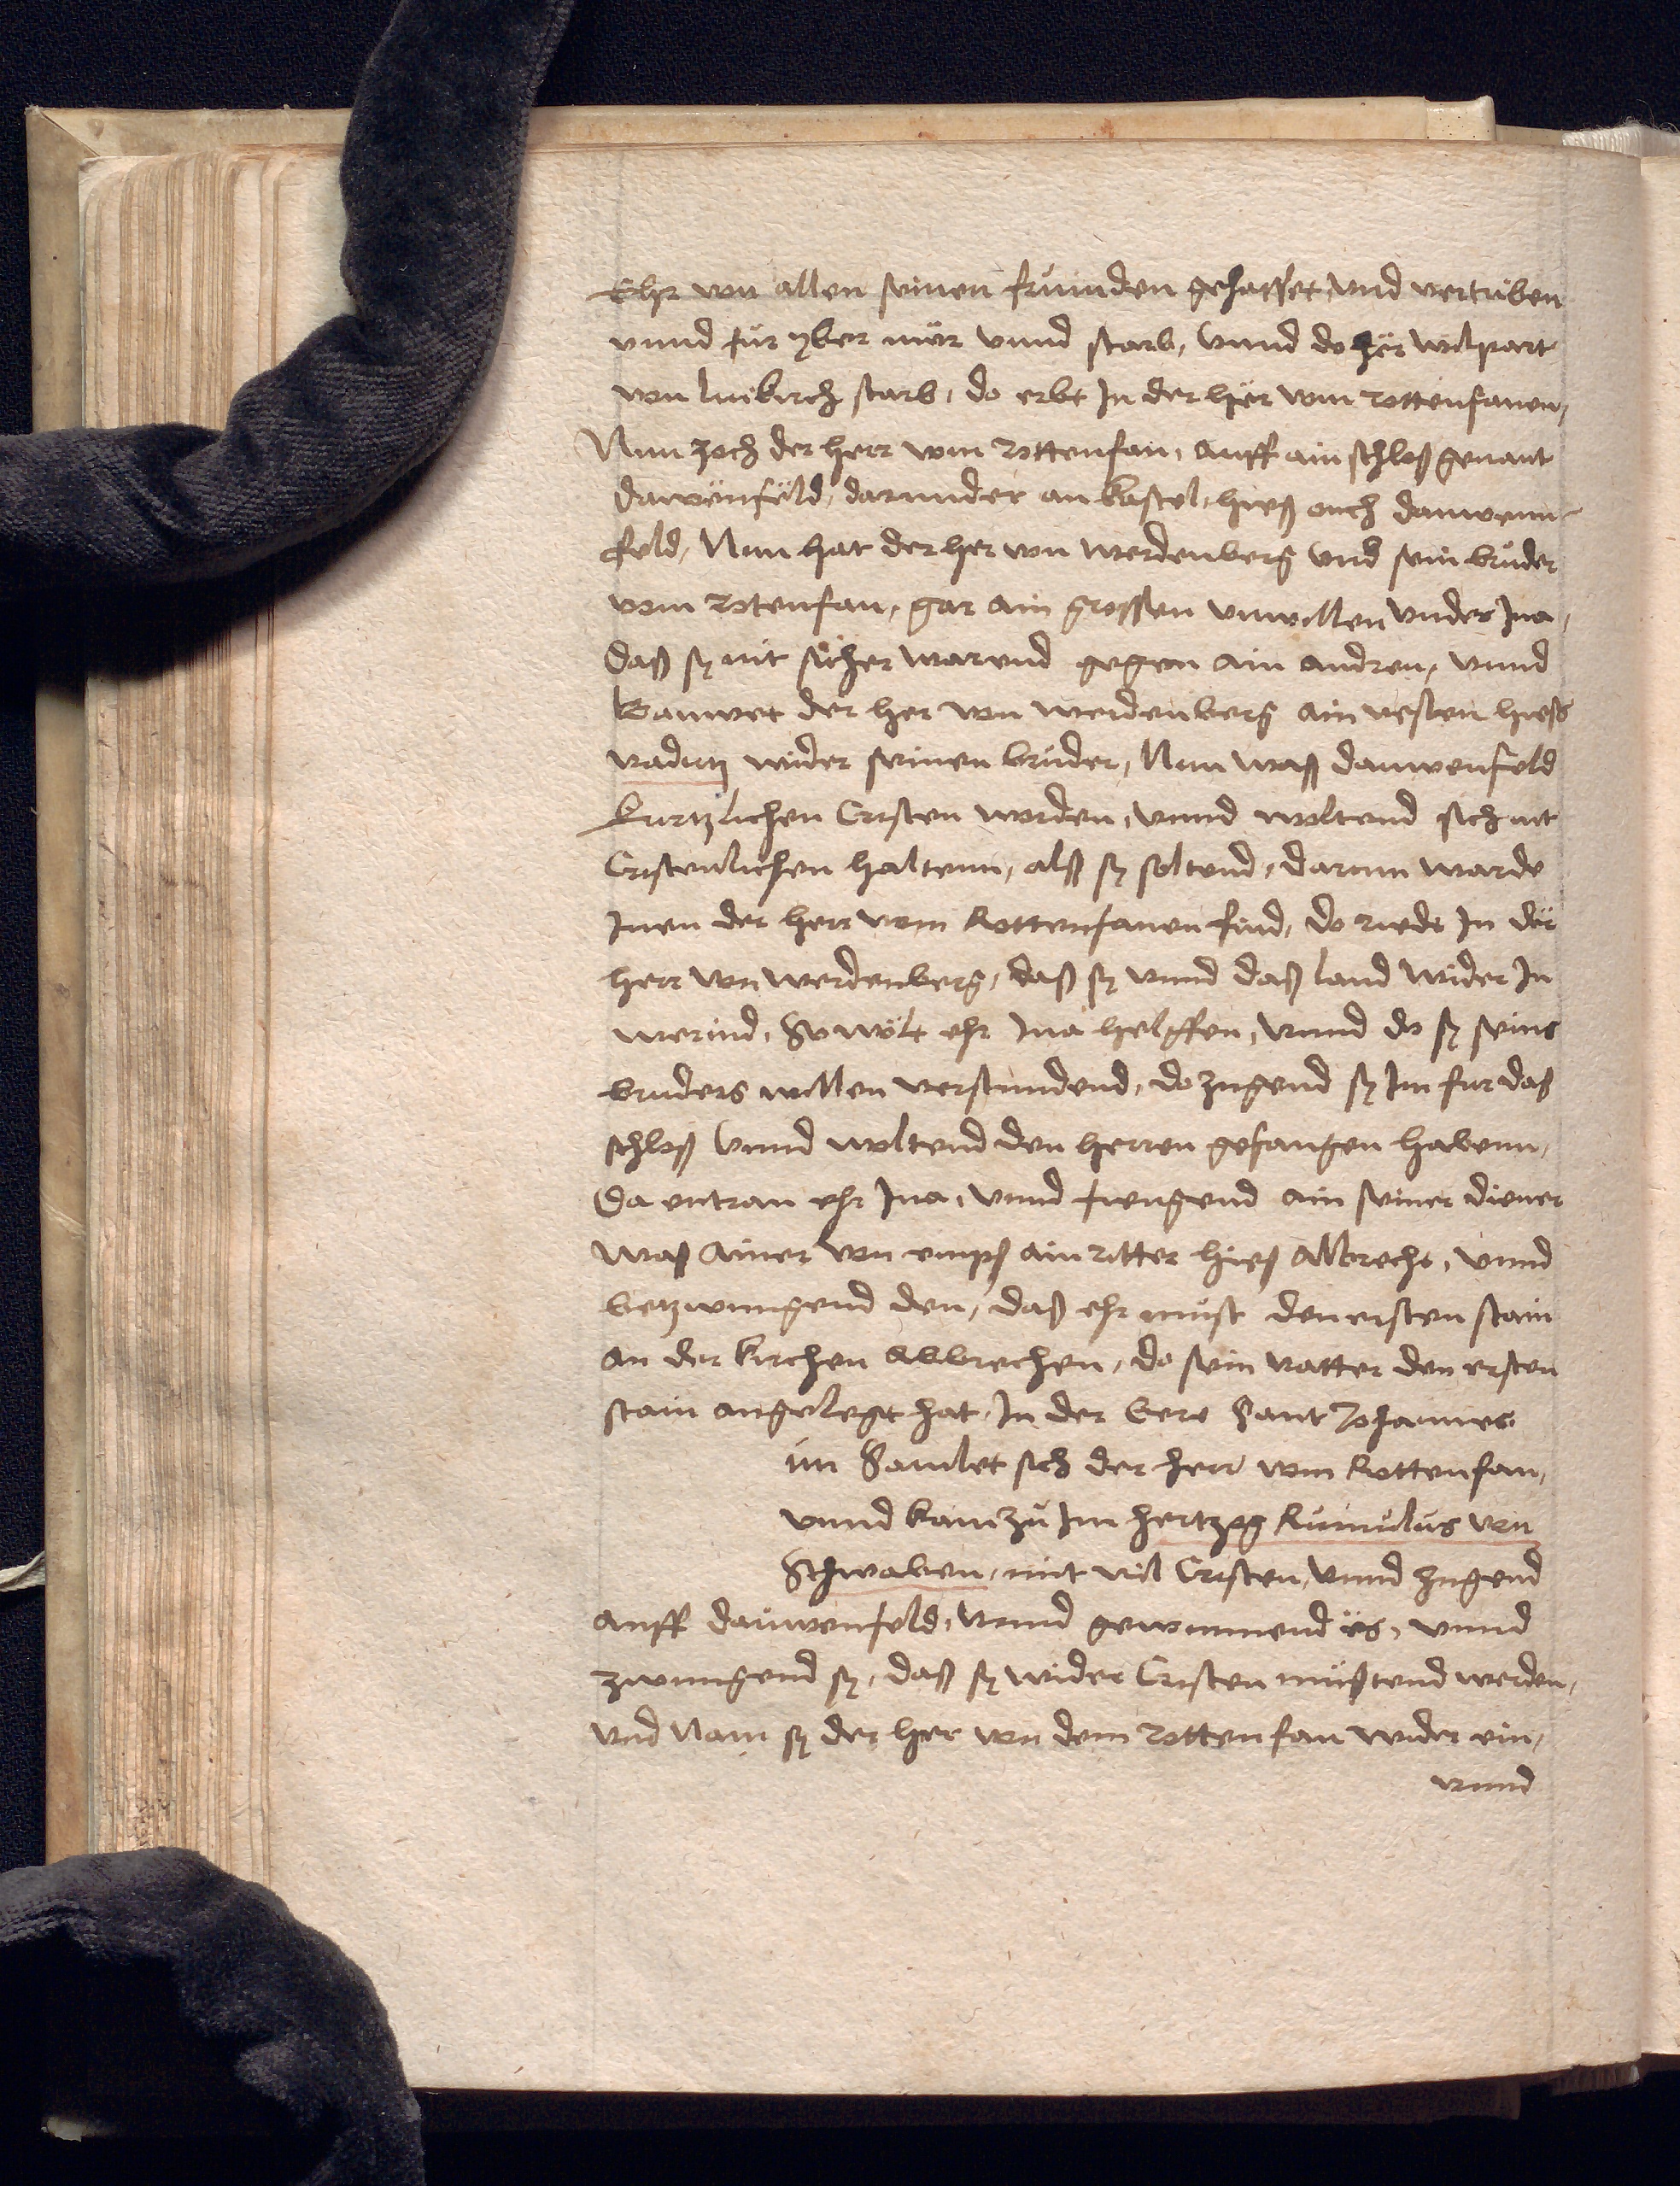 Ehr von allen seinen fruinden gehasset, vnd vertriben
vnnd fůr yber mör vnnd starb, vnnd do hër wilpart
von luikirch starb, do erbt In der hër vom rottenfanen,
Nun zoch der herr vom rottenfan, auff ain schloß genant
dawënfëld, darunder an kastel, hieß ouch dauwenn
feld, Nun hat der her von werdenberg vnd sein brůder
vom rotenfan, gar ain grossen vnwillen vnder Ina,
daß sy nit sicher warend gegen ain andren, vnnd
bauwet der her von werdenberg ain vesten hieß
vadutz wider seinen brůder, Nun waß dauwenfeld
kurtzlichen Cristen worden, vnnd woltend sich nit
Cristenlichen haltenn, alß sy soltend, darum warde
Inen der herr vom Rottenfanen find, do riedt In dër
herr von werdenberg, daß sy vnnd daß land wider In
werind, So wölt ehr Ina helffen, vnnd do sy seins
bruders willen verstundend, do zugend sy Im fur daß
schloß vnnd woltend den herren gefangen habenn,
Da entran ehr Ina, vnnd fiengend ain seiner diener
waß ainer von empß ain ritter hieß Albrecht, vnnd
betzwungend den, daß ehr můst den ersten stain
an der kirchen abbrechen, do sein vatter den ersten
stain angelegt hat, In der Eere Sant Johannes
un Samlet sich der herr vom Rottenfan,
vnnd kam zů Im hertzog Rumulus von
Schwaben, mit vil Cristen, vnnd zugend
auff dauwenfeld, vnnd gewunnend ës, vnnd
zwungend sy, daß sy wider Cristen müstend werden,
vnd Nam sy der her von dem rotten fan wider ein,
vnnd